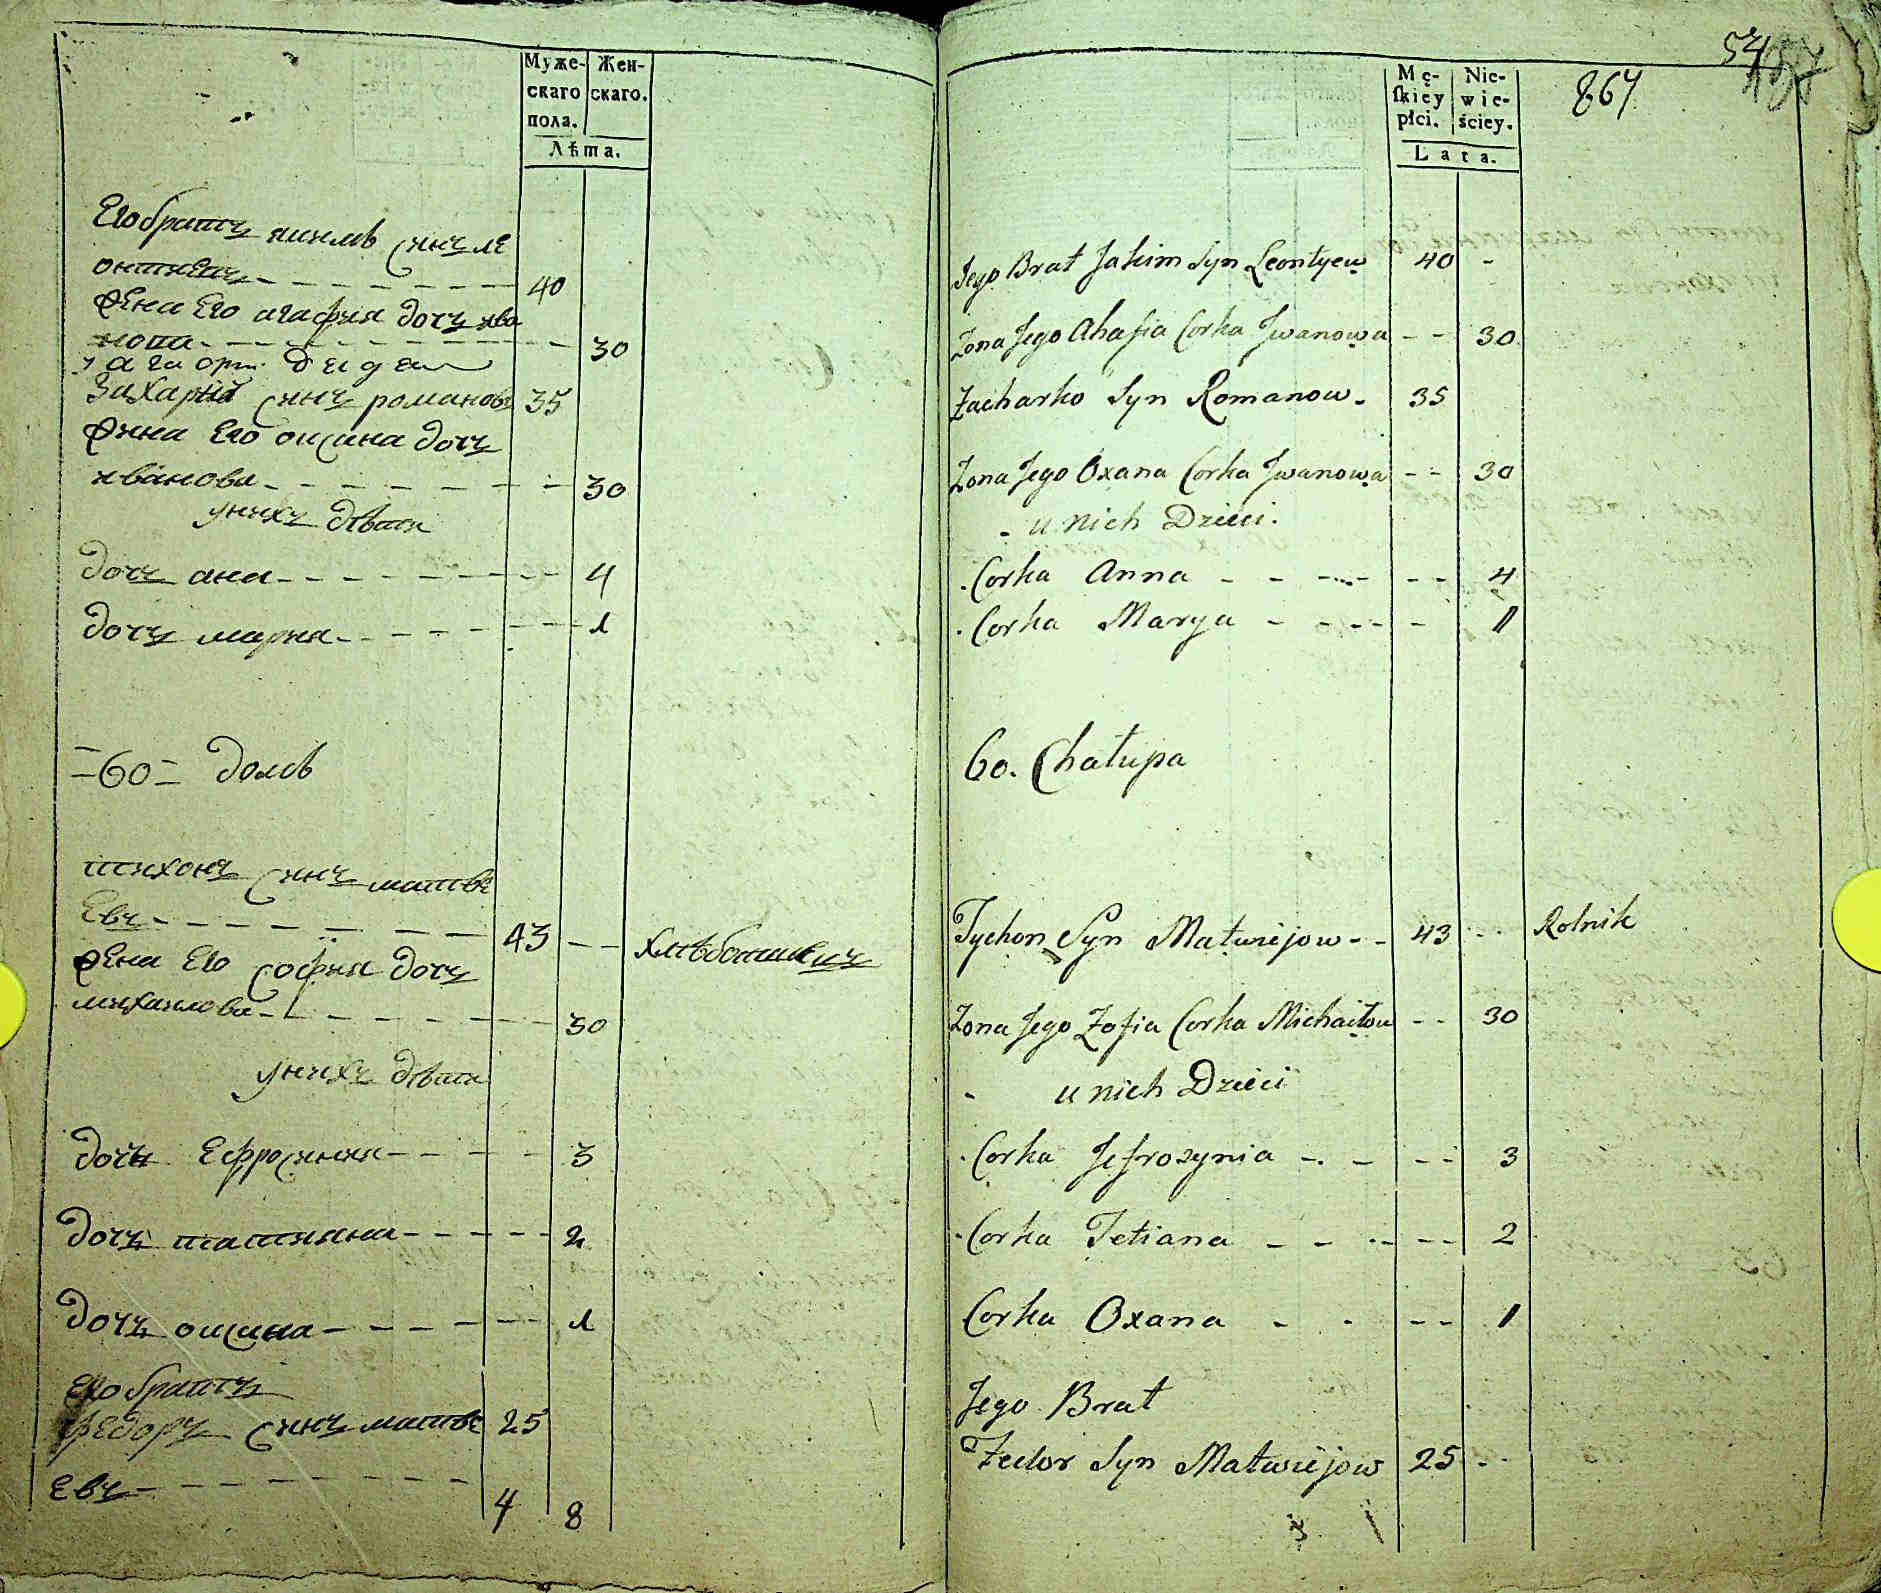 Муже-
скаго
пола.
Жен-
скаго.
Лѣта.
Его братъ якимъ синъ ле
онтиевъ 40
жена Его агафия дочъ ива
нова 30
Захарий синъ романовъ 35
жена Его оксана дочъ
иванова 30
унихъ дѣти
дочъ ана 4
дочъ мария 1
=60= домъ
тихонъ синъ матве
Евъ 43 хлѣбопашецъ
жена Его софия дочъ
михаилова 30
унихъ дѣти
дочъ Ефросиния 3
дочъ татияна 2
дочъ оксана 1
Его братъ
федоръ синъ матве 25
Евъ
4 8
54
867
Mę-
ſkiey
płci.
Nie-
wie-
ściey.
Lata.
Jego Brat Jakim Syn Leontyew 40 -
Żona Jego Ahafia Corka Jwanowa - - 30
Zacharko Syn Romanow - 35
Żona Jego Oxana Corka Jwanowa - - 30
u nich Dzieci.
Corka Anna 4
Corka Marya 1
60. Chałupa
Tychon Syn Matwiejow 43 Rolnik
Żona Jego Zofia Corka Michaiłow - - 30
u nich Dzieci
Corka Jefrozynia 3
Corka Tetiana 2
Corka Oxana 1
Jego Brat
Fedor Syn Matwiejow 25